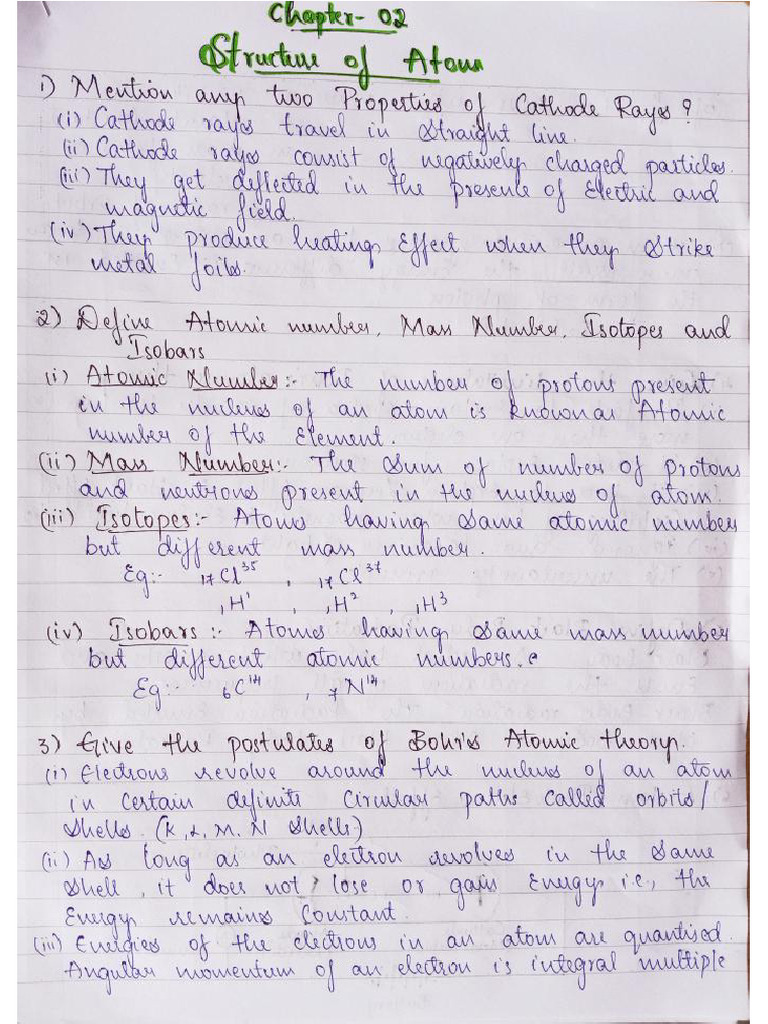 Chapter- 02
Structure of Atom
1) Mention any two Properties of Cathode Rays?
(i) Cathode rays travel in straight line.
(ii) Cathode rays consist of negatively charged particles.
(iii) They get deflected in the presence of Electric and
magnetic field.
(iv) They produce heating Effect when they strike
metal foils.
2) Define Atomic number, Mass Number, Isotopes and
Isobars
(i) Atomic Number:- The number of protons present
in the nucleus of an atom is known as Atomic
number of the Element.
(ii) Mass Number:- The Sum of number of protons
and neutrons present in the nucleus of atom.
(iii) Isotopes:- Atoms having same atomic number
but different mass number.
Eg:- ₁₇Cl³⁵ , ₁₇Cl³⁷
₁H¹ , ₁H² , ₁H³
(iv) Isobars:- Atoms having same mass number
but different atomic numbers.
Eg:- ₆C¹⁴ , ₇N¹⁴
3) Give the postulates of Bohr's Atomic theory.
(i) Electrons revolve around the nucleus of an atom
in certain definite circular paths called orbits/
shells. (K, L, M, N shells)
(ii) As long as an electron revolves in the same
shell, it does not lose or gain Energy i.e., the
Energy remains constant.
(iii) Energies of the electrons in an atom are quantised.
Angular momentum of an electron is integral multiple